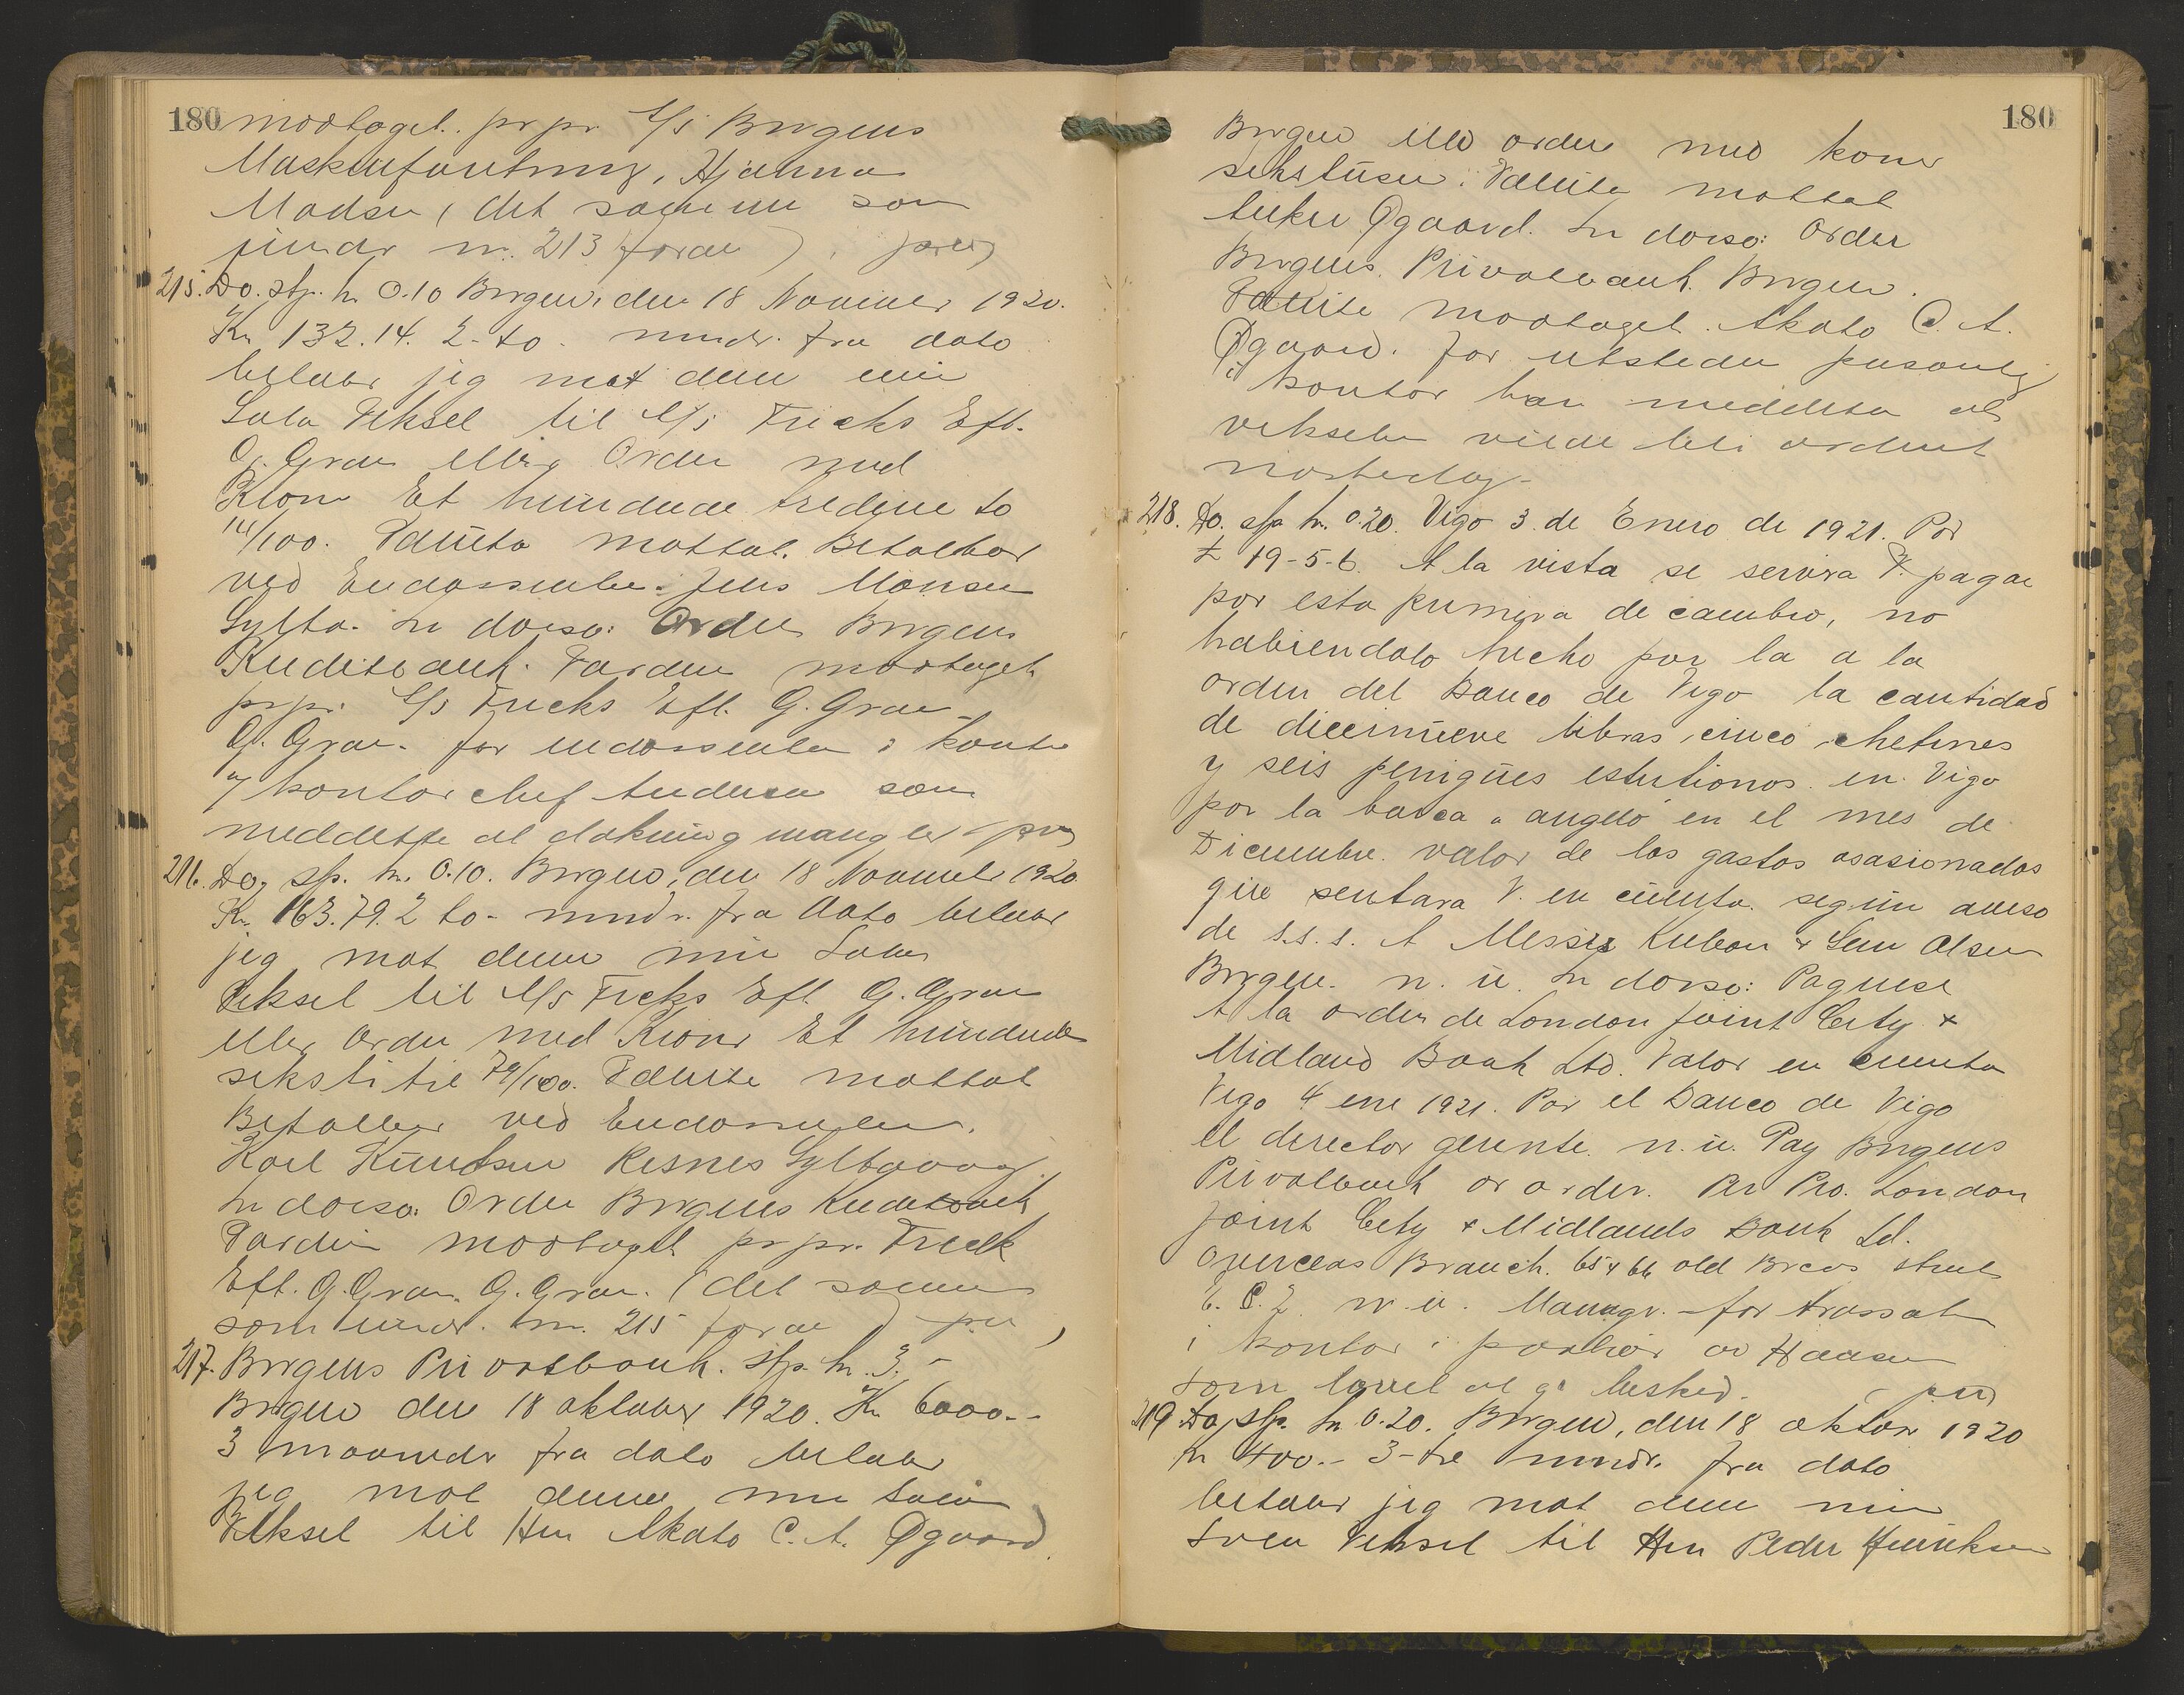 180 modtaget. pr pr. A/S Bergens
Maskinforretning, Hjalmar
Madsen (det samme som
under nr. 213 foran)
215. Do. stp. kr. 0.10 Bergen, den 18 November 1920.
Kr 132.14. 2-to mndr. fra dato
betaler jeg mot denne min
Sola Veksel til A/S Fricks Eft.
G. Gran eller Order med
Kroner Et hundrede tredve to
14/100. Valuta mottat. Betalbar
ved Endossenten. Jens Monsen
Sylta. In dorso: Order Bergens
Kreditbank. Værdien modtaget
pr pr. A/S Fricks Eft. G. Gran
G. Gran. for endossenten i kontor
av kontorchef Andersen som
meddelte at dækning mangler
216. Do. stp. kr. 0.10. Bergen, den 18 November 1920
Kr. 163.79. 2 to- mndr. fra dato betaler
jeg mot denne min Sola
Veksel til A/S Fricks Eft G. Gran
eller Order med Kroner Et hundrede
sekstitre 79/100. Valuta mottat
Betalbar ved Endossenten.
Karl Knutsen Risnes Sylta
In dorso. Order Bergens Kreditbank
Værdien modtaget pr pr. Frick
Eft. G. Gran. G. Gran. (det samme
som under nr. 215 foran)
217. Bergens Privatbank. Stp. kr. 3.-
Bergen den 18 oktober 1920. Kr 6000.-
3 maaneder fra dato betaler
jeg mot denne min Sola
Veksel til Herr Skato C. A. Øgaard
180
Bergen eller order med kroner
sekstusen. Valuta mottat
Øgaard. In dorso: Order
Bergens Privatbank. Bergen.
Valuta modtaget. Skato C. A.
Øgaard. for utstederen personlig
i kontor han meddelte at
vekselen vilde bli ordnet
næstedag.
218. Do. stp. kr. 0.20. Vigo 3. de Enero de 1921. Por
£ 19-5-6. A la vista se servira V. pagar
por esta primera de cambio, no
habiendolo hecho por la a la
orden del Banco de Vigo la cantidad
de diecinueve libras, cinco chelines
y seis peniques esterlinos en Vigo
por la barca angelo en el mes de
Diciembre. valor de los gastos osasionados
que sentara V. en cuenta. segun aviso
de s.s.s. A Messrs Kulbon & Sem Olsen
Bergen. n. u. In dorso: Paguese
A la orden de London Joint City &
Midland Bank Ltd. Valor en cuenta
Vigo 4 ene 1921. Por el Banco de Vigo
el director gerente. n. u. Pay Bergens
Privatbank or order. Per Pro. London
Joint City & Midlands Bank Ld.
Overseas Branch. 65 & 66 old Broad street
E. C. 2. n. u. Managr. - for trassaten
i kontor: portier av Haasen
som lovet at gi besked.
219 Do. stp. kr. 0.20. Bergen, den 18 oktober 1920
Kr 400.- 3-tre mndr. fra dato
betaler jeg mot denne min
sola Veksel til Herr Peder Henriksen